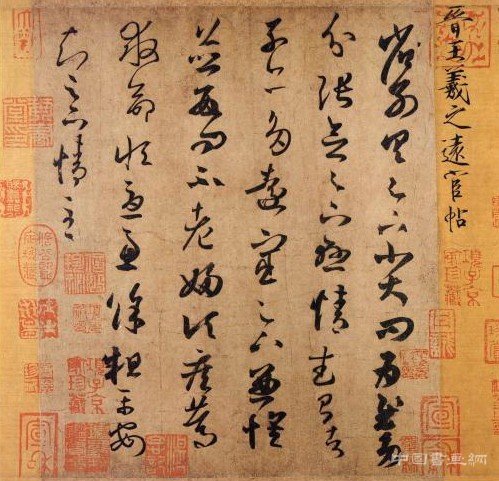 晉王羲之遠宦帖
省別具足下小大問為慰多
分張念足下懸情武昌諸
子亦多遠宦足下兼懷
並數問不老婦頃疾篤
救命恒憂慮餘粗平安
知足下情至
中國書畫網